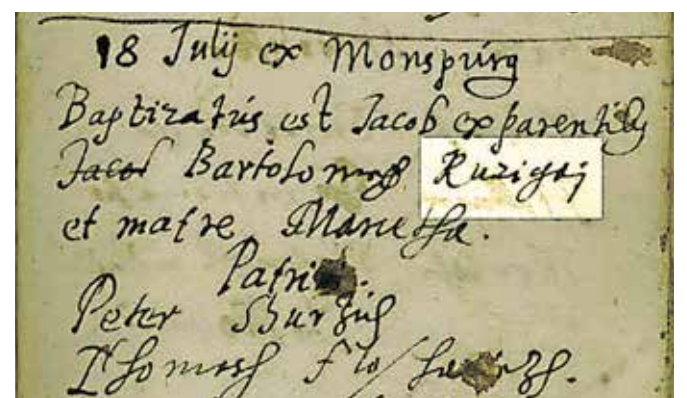 18 Julij ex Monspurg
Baptizatus est Jacob ex parentib9
Jacob Bartolomeß Ruzigaj
et matre Maruſha.
Patrin.
Peter
Thomaſh